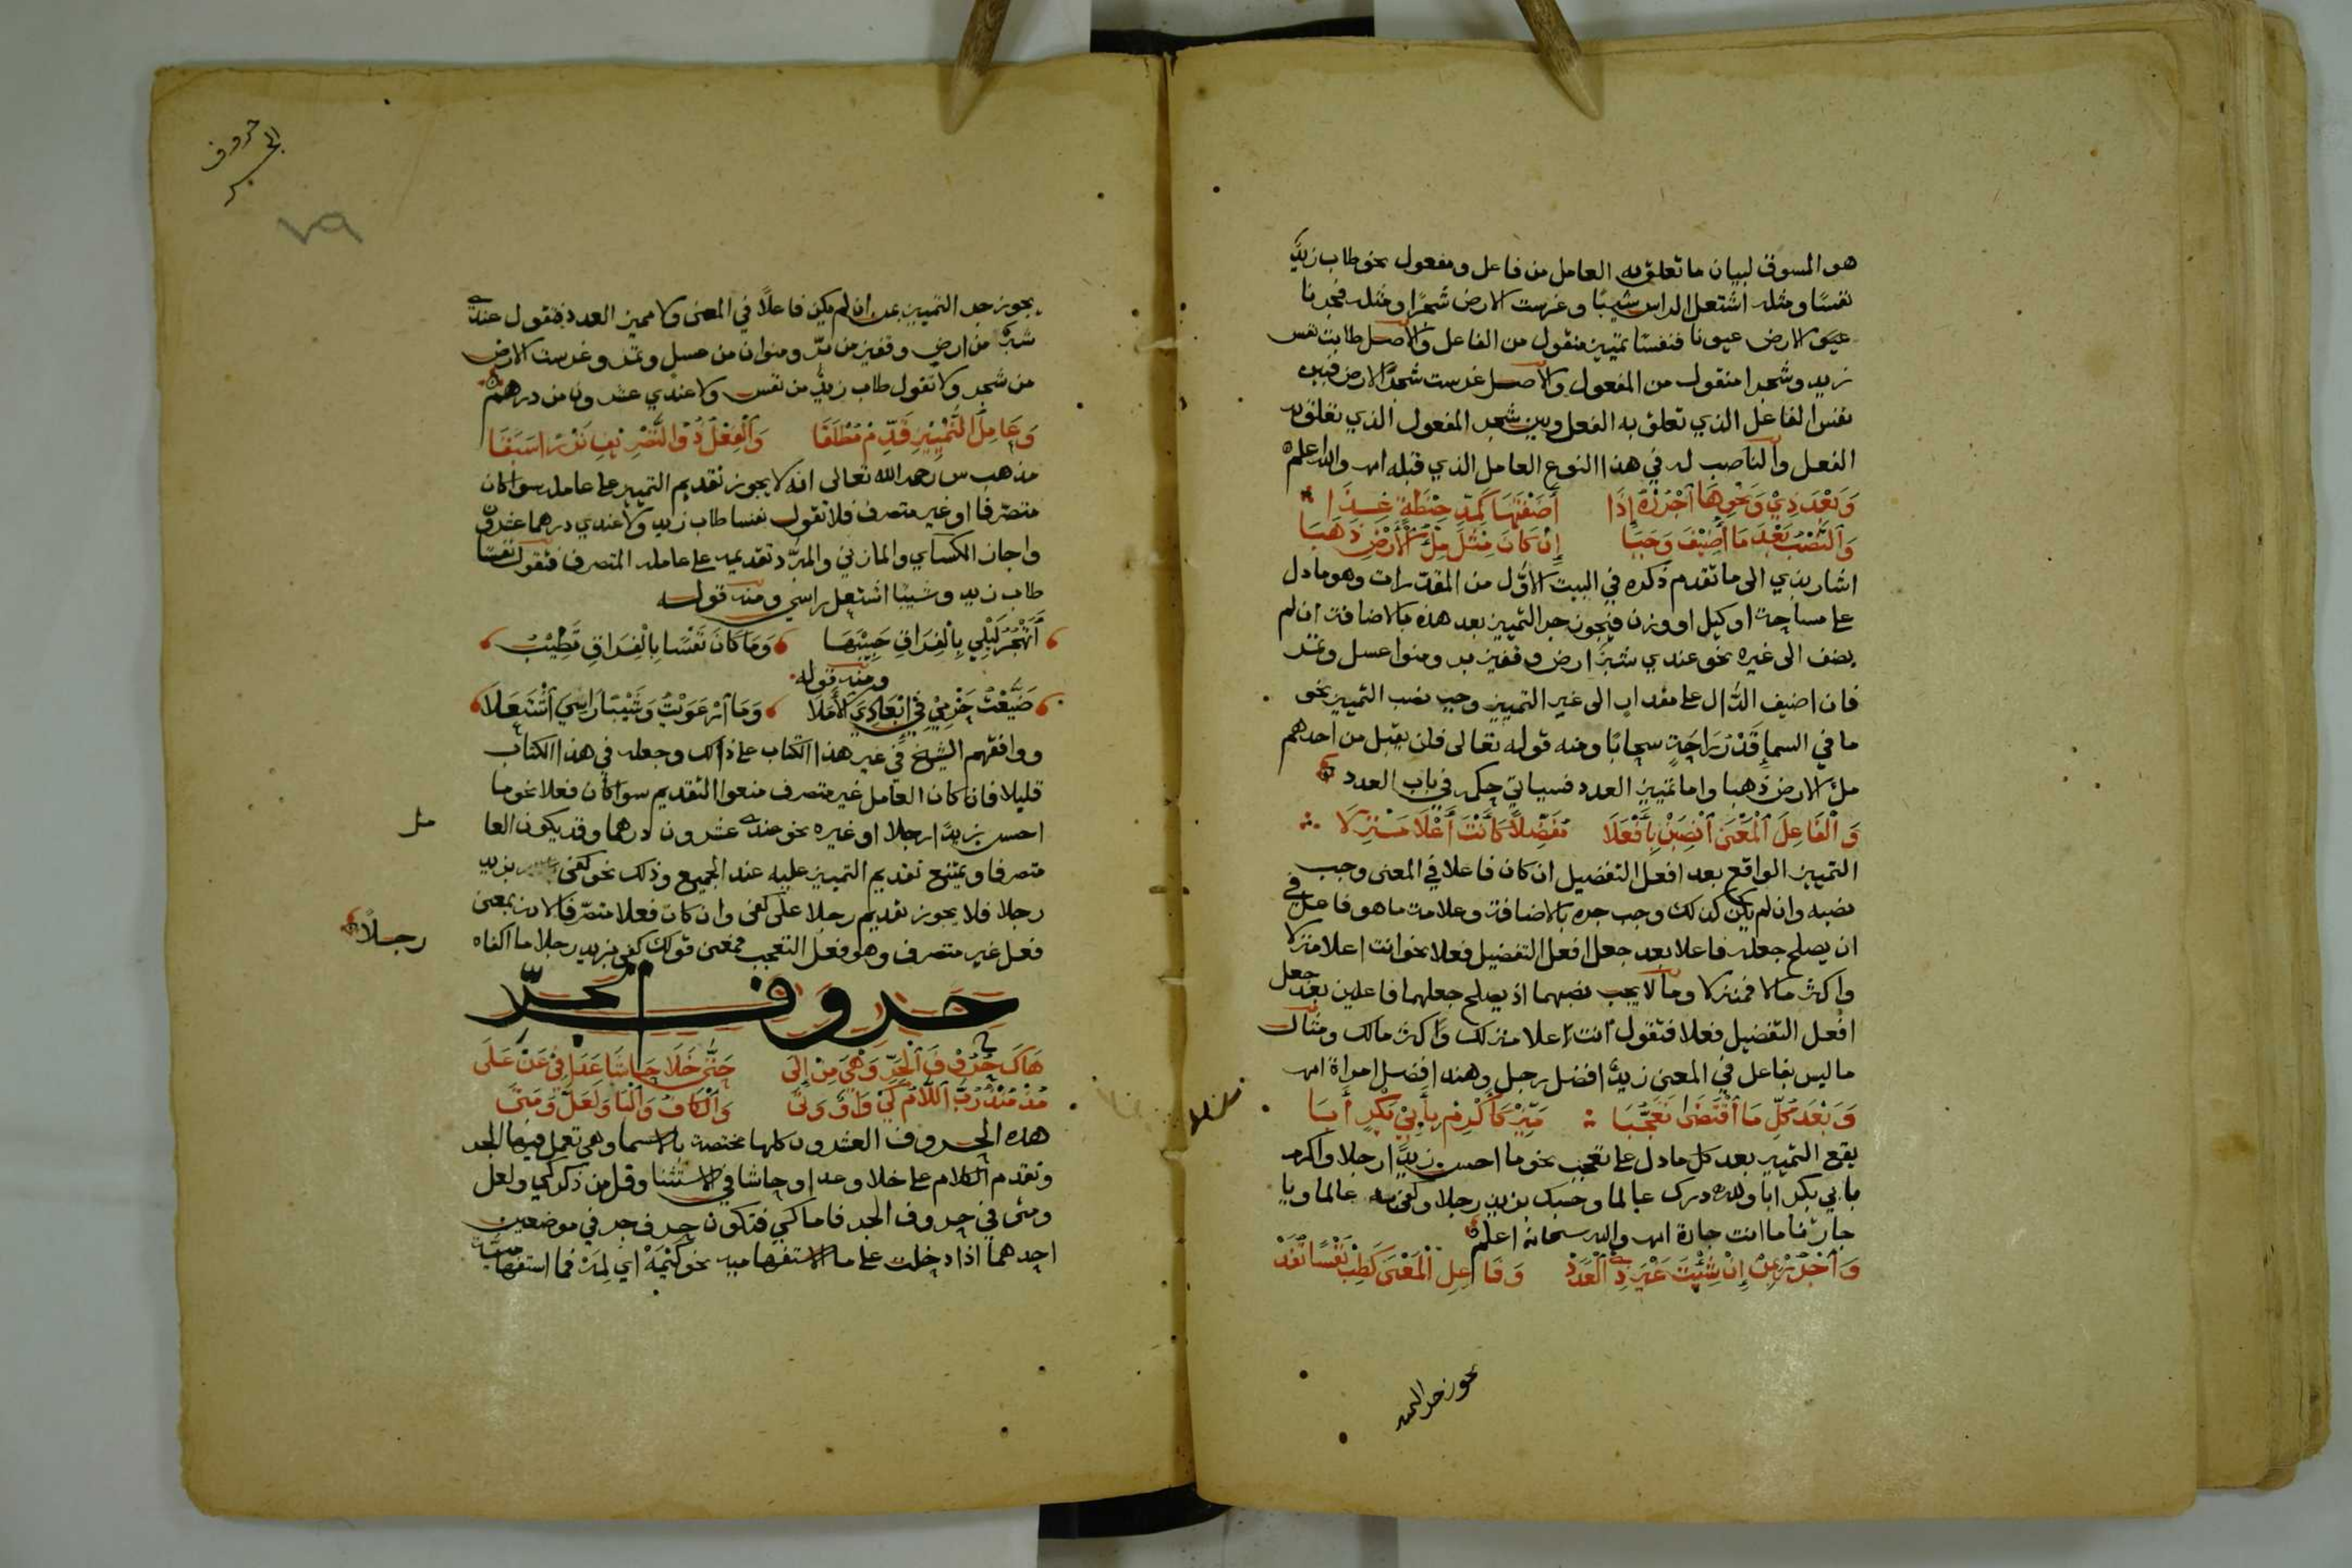 هو المسوق لبيان ما تعلق به العامل من فاعل ومفعول نحو طاب زيدٌ
نفسًا ومثله اشتعل الراس شيبًا وغرست الارض شجرًا ومثله فجرنا
الارض عيونا فنفسًا تمييز منقول من الفاعل والاصل طابت نفس
زيد وشجرا منقول من المفعول والاصل غرست شجرَ الارض فبين
نفس الفاعل الذي تعلق به الفعل وبين شجر المفعول الذي تعلق به
الفعل والناصب له في هذا النوع العامل الذي قبله اه والله اعلم
وَبَعْدَ ذِيْ وَنَحْوِهَا ٱجْرُرْهُ إِذَا أَضَفْتَهَا كَمُدِّ حِنْطَةٍ غِذَا
وَٱلنَّصْبُ بَعْدَ مَا أُضِيْفَ وَجَبَا إِنْ كَانَ مِثْلَ مِلْءُ ٱلْأَرْضِ ذَهَبَا
اشار بذي الى ما تقدم ذكره في البيت الاوّل من المقدرات وهو ما دل
على مساحة او كيل او وزن فيجوز جر التمييز بعد هذه بالاضافة ان لم
يضف الى غيره نحو عندي شبرُ ارض وقفيز بر ومنوا عسل وتمر
فان اضيف الدّال على مقدار الى غير التمييز وجب نصب التمييز نحو
ما في السماءِ قَدْرُ رَاحَةٍ سحابًا ومنه قوله تعالى فلن يقبل من احدهم
ملء الارض ذهبا واما تمييز العدد فسياتي حكمه في باب العدد
وَٱلْفَاعِلَ ٱلْمَعْنَى ٱنْصِبَنْ بِأَفْعَلَا مُفَضِّلًا كَأَنْتَ أَعْلَا مَنْزِلَا
التمييز الواقع بعد افعل التفضيل ان كان فاعلا في المعنى وجب
نصبه وان لم يكن كذلك وجب جره بالاضافة وعلامة ما هو فاعل في
ان يصلح جعله فاعلا بعد جعل افعل التفضيل فعلا نحو انت اعلا منزلا
واكثر مالا فمنزلا ومالا يجب نصبهما اذ يصلح جعلهما فاعلين بعد جعل
افعل التفضيل فعلا فتقول انت اعلا منزلك واكثر مالك ومثال
ما ليس بفاعل في المعنى زيدٌ افضل رجل وهند افضل امراة اه
وَبَعْدَ كُلِّ مَا ٱقْتَضَى تَعَجُّبَا مَيِّزْ كَأَكْرِمْ بِأَبِيْ بَكْرٍ أَبَا
يقع التمييز بعد كل ما دل على تعجب نحو ما احسن زيدًا رجلا واكرم
بابي بكر ابا ولله درك عالما وحسبك بزيد رجلا وكفى به عالما ويا
جارتا ما انت جارة اه والله سبحانه اعلم
وَٱجْرُرْ بِمِنْ إِنْ شِئْتَ غَيْرَ ذِي ٱلْعَدَدْ وَفَاعِلِ ٱلْمَعْنَى كَطِبْ نَفْسًا تُفَدْ
يجوز جر التمييز
حروف
الجر
٧٩
يجوز جر التمييز بمن ان لم يكن فاعلًا في المعنى ولا مميز العدد فتقول عندي
شبرٌ من ارض وقفيز من برّ ومنوان من عسل وتمر وغرست الارض
من شجر ولا تقول طاب زيدٌ من نفس ولا عندي عشرون من درهم
وَعَامِلَ ٱلتَّمْيِيْزِ قَدِّمْ مُطْلَقًا وَٱلْفِعْلُ ذُو ٱلتَّصْرِيْفِ نَزْرًا سُبِقَا
مذهب س رحمه الله تعالى انه لا يجوز تقديم التمييز على عامله سوا كان
متصرّفا او غير متصرف فلا تقول نفسا طاب زيد ولا عندي درهما عشرون
واجاز الكساي والمازني والمبرّد تقديمه على عامله المتصرف فتقول نفسًا
طاب زيد وشيبًا اشتعل راسي ومنه قوله
أَتَهْجُرُ لَيْلِي بِالْفِرَاقِ حَبِيْبَهَا وَمَا كَانَ نَفْسًا بِالْفِرَاقِ تَطِيْبُ
ومنه قوله
ضَيَّعْتُ حَزْمِيْ فِيْ إِبْعَادِيَ ٱلْأَمَلَا وَمَا ٱرْعَوَيْتُ وَشَيْبًا رَاسِيَ ٱشْتَعَلَا
ووافقهم الشيخ في غير هذا الكتاب على ذلك وجعله في هذا الكتاب
قليلا فان كان العامل غير متصرف منعوا التقديم سوا كان فعلا نحو ما
احسن زيدًا رجلا او غيره نحو عندي عشرون درهما وقد يكون العا
مل
متصرفا ويمتنع تقديم التمييز عليه عند الجميع وذلك نحو كفى بزيد
رجلا فلا يجوز تقديم رجلا على كفى وان كان فعلا متصرّفا لانه بمعنى
فعل غير متصرف وهو فعل التعجب فمعنى قولك كفى بزيد رجلا ما اكفاه
رجلًا
حروف الجرّ
هَاكَ حُرُوْفَ ٱلْجَرِّ وَهْيَ مِنْ إِلَى حَتَّى خَلَا حَاشَا عَدَا فِيْ عَنْ عَلَى
مُذْ مُنْذُ رُبَّ ٱللَّامُ كَيْ وَاوٌ وَتَا وَٱلْكَافُ وَٱلْبَا وَلَعَلَّ وَمَتَى
هذه الحروف العشرون كلها مختصة بالاسما وهي تعمل فيها الجر
وتقدم الكلام على خلا وعدا وحاشا في الاستثنا وقل من ذكر كي ولعل
ومتى في حروف الجر فاما كي فتكون حرف جر في موضعين
احدهما اذا دخلت على ما الاستفهامية نحو كَيْمَهْ اي لِمَهْ فما استفهامية